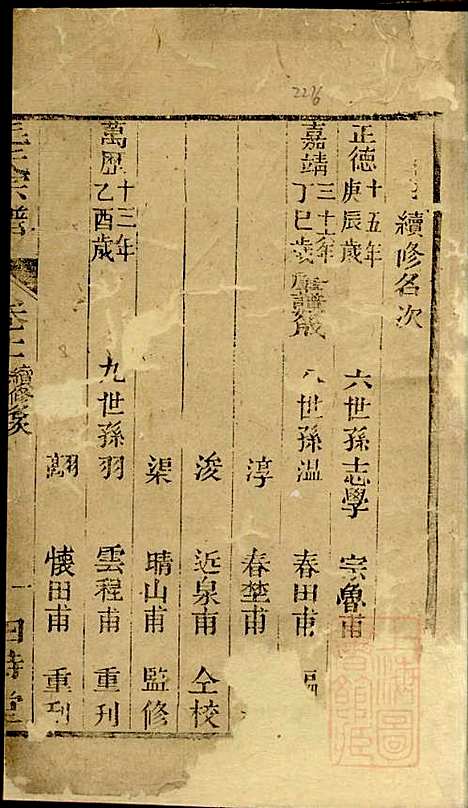 續修名次
正德十五年庚辰歲 六世孫志學 宗魯甫
嘉靖三十六年丁巳歲 世孫溫 春田甫
淳 春埜甫
浚 近泉甫 仝校
渠 晴山甫 監修
萬歷十三年乙酉歲 九世孫羽 雲程甫 重刊
翮 懷田甫 重刊
宗譜 卷之 續修名次 一
2276